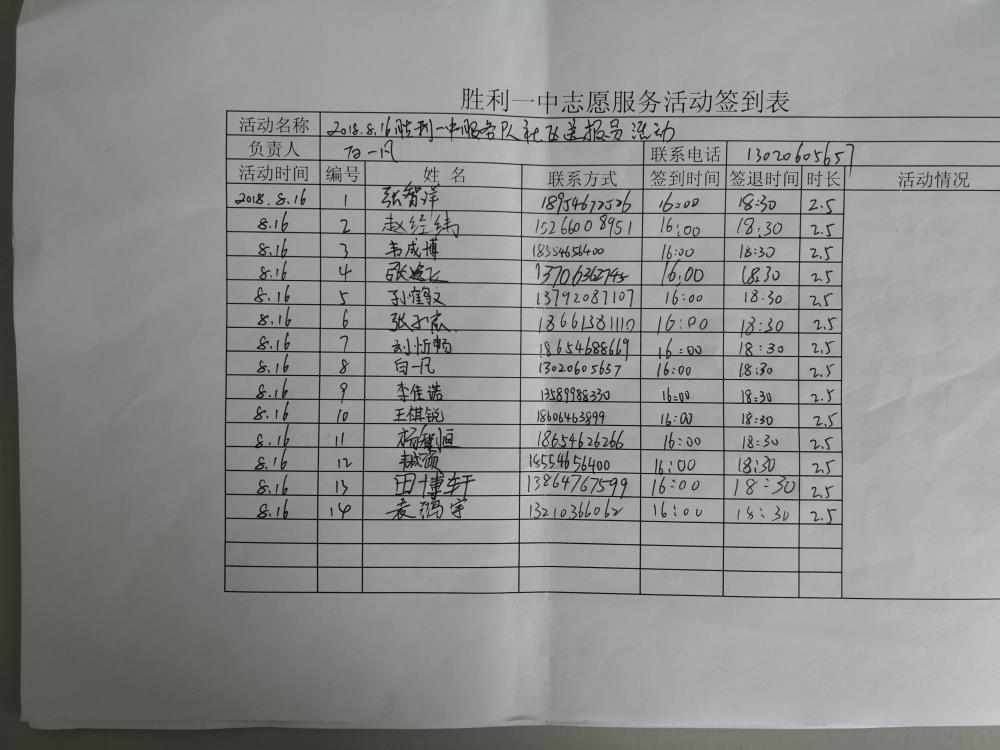 胜利一中志愿服务活动签到表
活动名称 2018.8.16胜利一中服务队社区送报员活动
负责人 白一凡 联系电话 13020605657
活动时间 编号 姓名 联系方式 签到时间 签退时间 时长 活动情况
2018.8.16 1 张智洋 18954672526 16:00 18:30 2.5
8.16 2 赵经纬 15266008951 16:00 18:30 2.5
8.16 3 韦成博 18554656400 16:00 18:30 2.5
8.16 4 13706362745 16:00 18:30 2.5
8.16 5 13792087107 16:00 18:30 2.5
8.16 6 16:00 18:30 2.5
8.16 7 刘忻畅 18654688669 16:00 18:30 2.5
8.16 8 白一凡 13020605657 16:00 18:30 2.5
8.16 9 李佳诺 13589988330 16:00 18:30 2.5
8.16 10 王祺锐 18606463899 16:00 18:30 2.5
8.16 11 18654626266 16:00 18:30 2.5
8.16 12 18554656400 16:00 18:30 2.5
8.16 13 田博轩 13864767599 16:00 18:30 2.5
8.16 14 13210366062 16:00 18:30 2.5